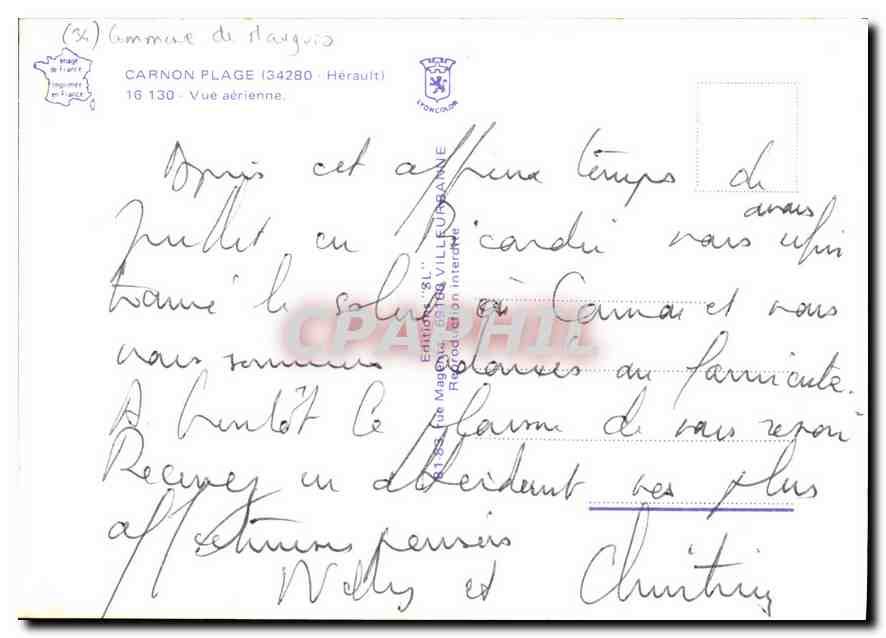 (34) Commune de Mauguio
image de France
imprimée en France
CARNON PLAGE (34280 - Hérault)
16 130 - Vue aérienne.
LYONCOLOR
Editions "SL"
81-83, rue Magenta, 69100 VILLEURBANNE
Reproduction interdite
Après cet affreux temps de
juillet en Picardie nous avons enfin
trouvé le soleil à Carnon et nous
nous sommes adonnés au farniente.
A bientôt le plaisir de vous revoir
Recevez en attendant nos plus
affectueuses pensées
Willy et Christine
CPAPHIL